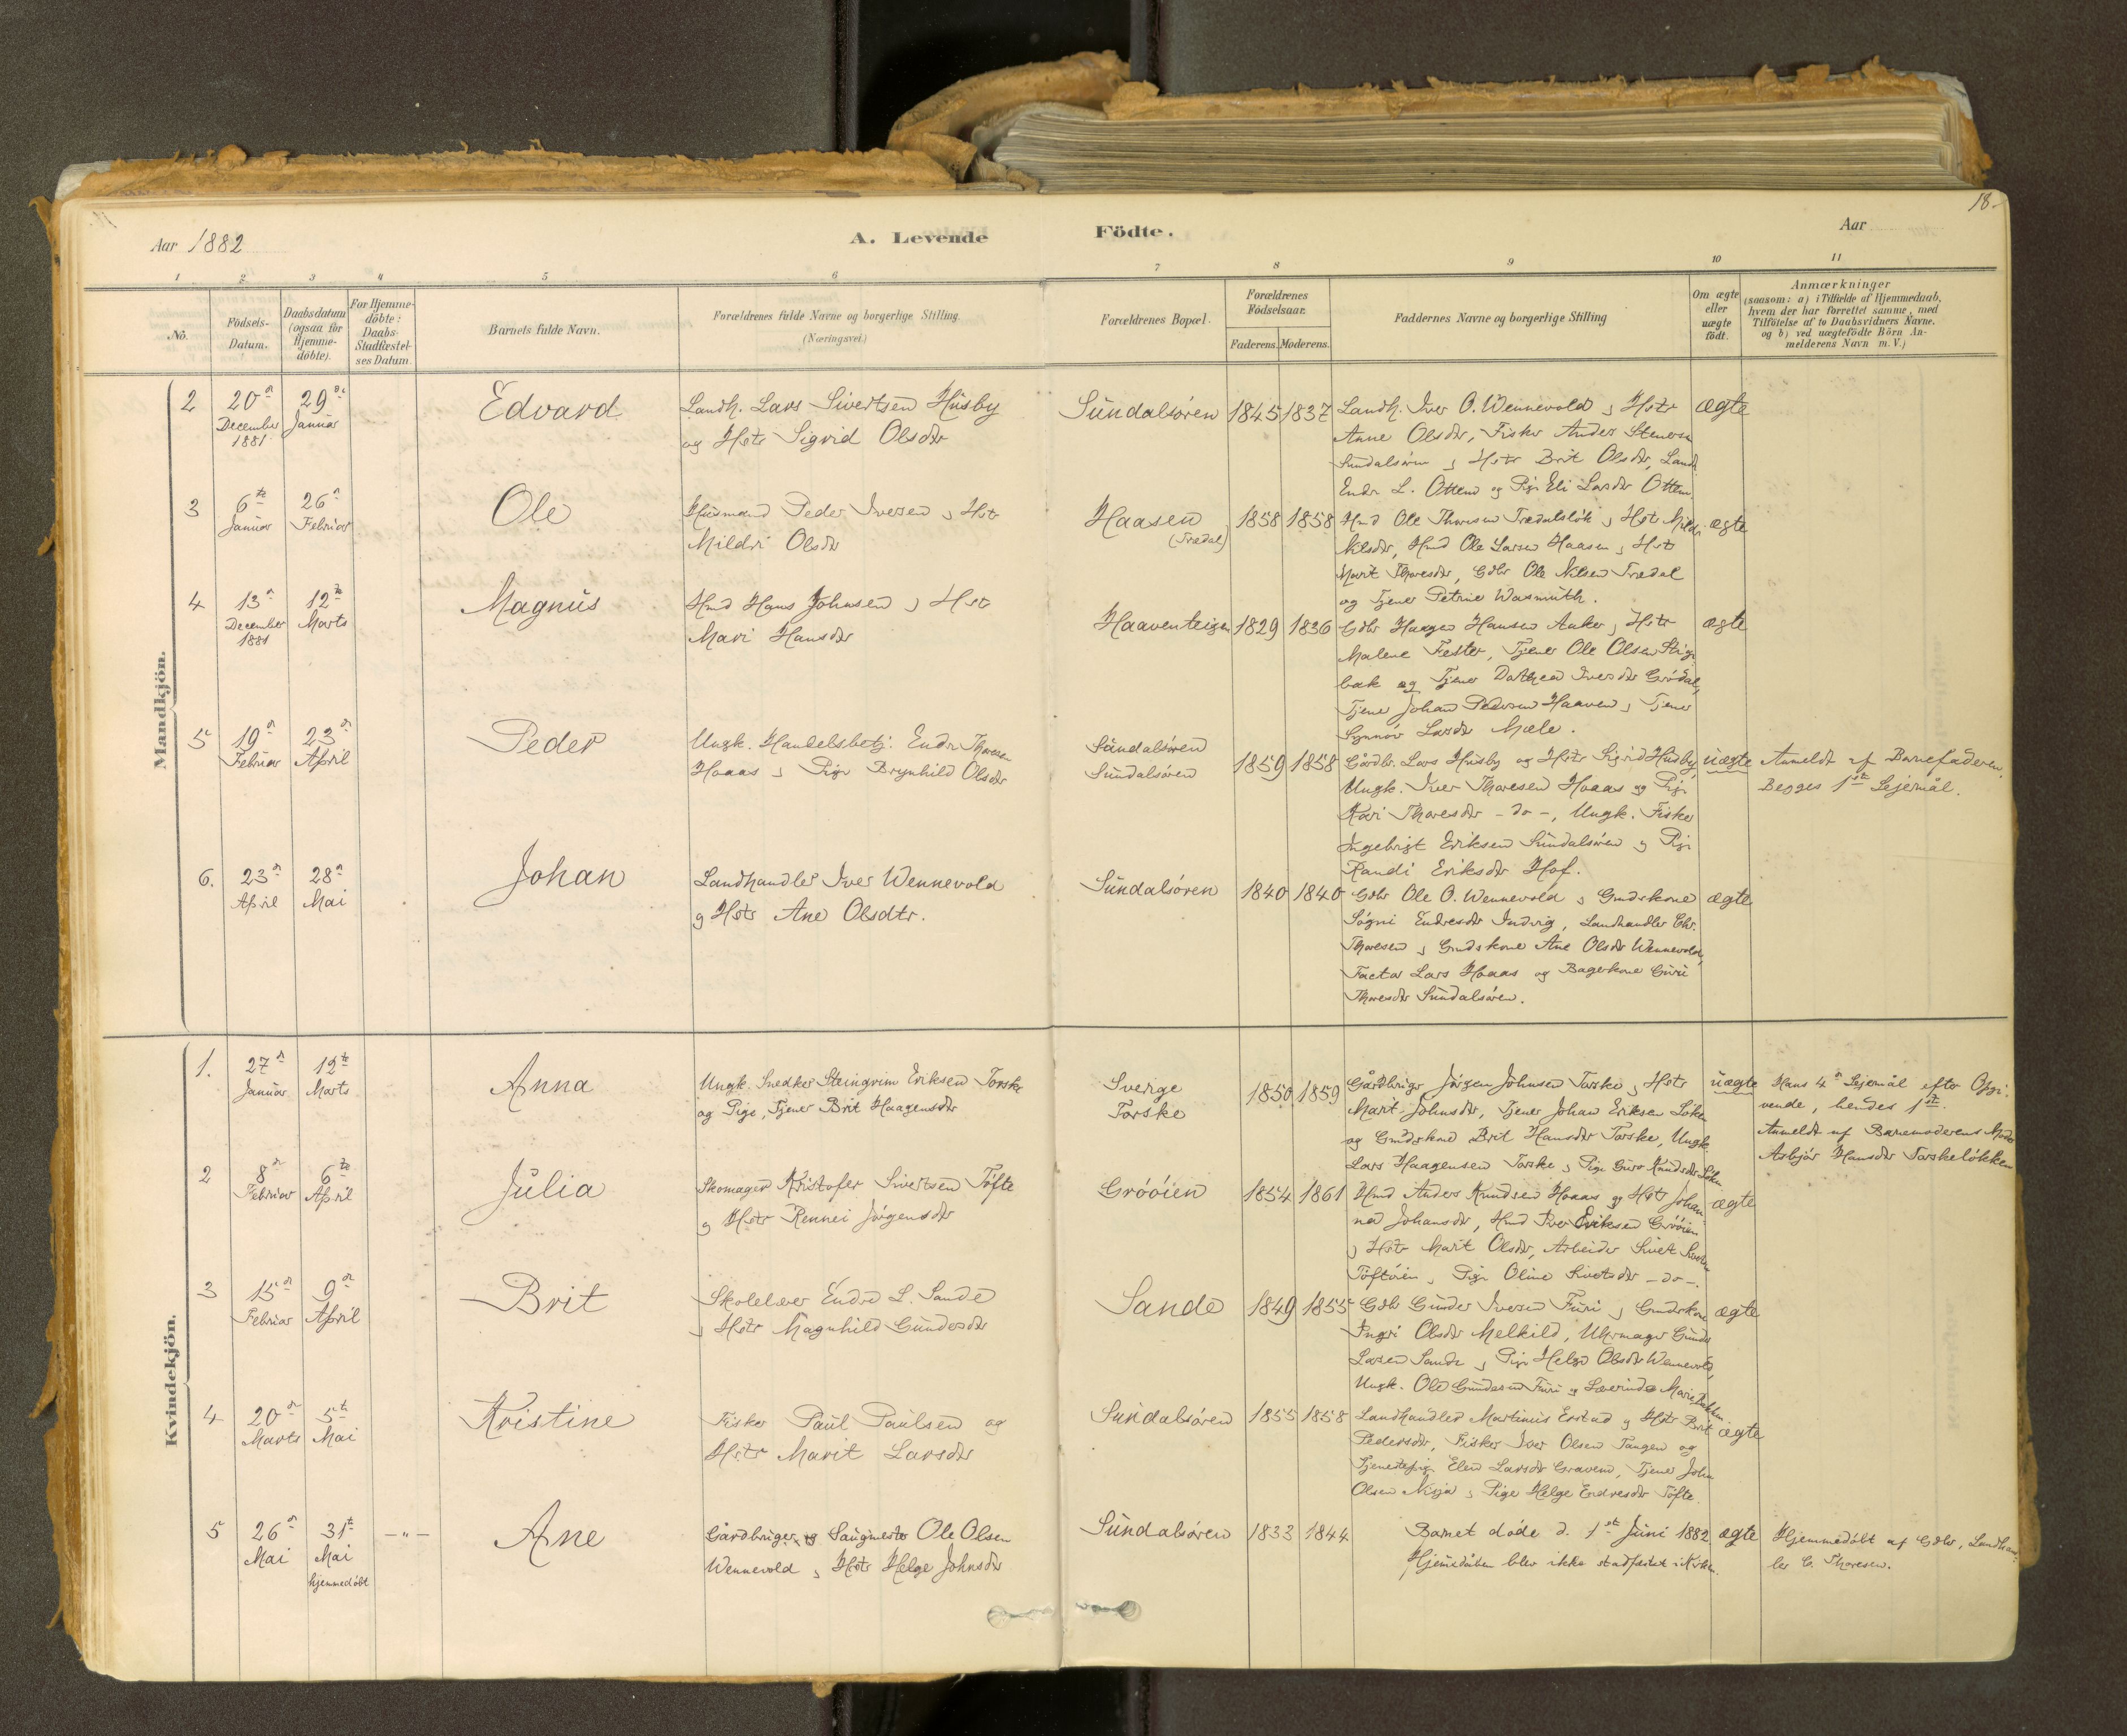 18.
Aar 1882
A. Levende
Födte.
Aar
1 2 3 4 5 6 7 8 9 10 11
No.
Födsels-
Datum.
Daabsdatum
(ogsaa for
Hjemme-
döbte).
For Hjemme-
döbte:
Daabs-
Stadfæstel-
ses Datum.
Barnets fulde Navn.
Forældrenes fulde Navne og borgerlige Stilling.
(Næringsvei.)
Forældrenes Bopæl.
Forældrenes
Födselsaar.
Faderens. Moderens.
Faddernes Navne og borgerlige Stilling
Om ægte
eller
uægte
födt.
Anmærkninger
(saasom: a) i Tilfælde af Hjemmedaab,
hvem der har forrettet samme, med
Tilföielse af to Daabsvidners Navne.
og b) ved uægtefödte Börn An-
melderens Navn m. V.)
Mandkjön.
2
20de
December
1881
29de
Januar
Edvard
Landh. Lars Sivertsen Husby
og Hstr Sigrid Olsdtr
Sundalsören
1845 1837
Landh. Iver O. Wennevold og Hstr
Anne Olsdtr, Fisker Anders Stenersn
Sundalsören og Hstr Brit Olsdtr, Landh
Endr. L. Ottem og Pige Eli Larsdtr Ottem
ægte
3
6te
Januar
26de
Februar
Ole
Husmand Peder Iversen og Hstr
Mildri Olsdtr
Haasen
(Trædal)
1858 1858
Hmd Ole Thoresen Trædalslök og Hst Mildri
Nilsdtr, Hmd Ole Larsen Haasen og Hstr
Marit Thoresdtr, Gdbr Ole Nilsen Trædal
og Tjener Petrine Wasmuth.
ægte
4
13de
December
1881
12te
Marts
Magnus
Hmd Hans Johnsen og Hstr
Mari Hansdtr
Haaventeigen
1829 1836
Gdbr Haagen Hansen Aaker og Hstr
Malene Fester, Tjener Ole Olsen Stig-
bak og Tjener Dorthea Iversdtr Grödal,
Tjener Johan Pedersen Haaven og Tjener
Synnöv Larsdtr Mæle.
ægte
5
19de
Februar
23de
April
Peder
Ungk. Handelsbetj. Endr. Thoresen
Hoaas og Pige Brynhild Olsdtr
Sundalsören
Sundalsören
1859 1858
Gårdbr. Lars Husby og Hstr Sigrid Husby,
Ungk. Iver Thoresen Hoaas og Pige
Kari Thoresdtr - do -, Ungk. Fisker
Ingebrigt Eriksen Sundalsören og Pige
Randi Eriksdtr Hof.
uægte
Anmeldt af Barnefaderen.
Begges 1ste Lejermål.
6.
23de
April
28de
Mai
Johan
Landhandler Iver Wennevold
og Hstr Ane Olsdtr.
Sundalsören
1840 1840
Gdbr Ole O. Wennevold og Gmdskone
Sögni Endresdtr Indvig, Landhandler Chr.
Thoresen og Gmdskone Ane Olsdtr Wennevold,
Factor Lars Hoaas og Bagerkone Guru
Thoresdtr Sundalsören.
ægte
Kvindekjön.
1.
27de
Januar
12te
Marts
Anna
Ungk. Snedker Steingrim Eriksen Torske
og Pige, Tjener Brit Haagensdtr
Sverige
Torske
1850 1859
Gårdbruger Jörgen Johnsen Torske og Hstr
Marit Johnsdtr, Tjener Johan Eriksen Löken
og Gmdskone Brit Hansdtr Torske, Ungk.
Lars Haagensen Torske og Pige Guro Knudsdtr Löken
uægte
Hans 4de Lejermål efter Opgi-
vende, hendes 1ste.
Anmeldt af Barnemoderens Moder
Asbjör Hansdtr Torskelökken
2
8de
Februar
6te
April
Julia
Skomager Kristofer Sivertsen Töfte
og Hstr Rennei Jörgensdtr
Gröóien
1854 1861
Hmd Anders Knudsen Hoaas og Hstr Johan-
na Johansdtr, Hmd Iver Eriksen Gröóien
og Hstr Marit Olsdtr, Arbeider Sivert Sivertsn
Töftóien og Pige Oline Sivertsdtr - do -.
ægte
3
15de
Februar
9de
April
Brit
Skolelærer Endre L. Sande
og Hstr Magnhild Gundersdtr
Sande
1849 1855
Gdbr Gunder Iversen Furu og Gmdskone
Ingri Olsdtr Melkild, Uhrmager Gunder
Larsen Sande og Pige Helge Olsdtr Wennevold,
Ungk. Ole Gundersen Furu og Lærerinde Marie Bakken
ægte
4
20de
Marts
5te
Mai
Kristine
Fisker Paul Paulsen og
Hstr Marit Larsdtr
Sundalsören
1855 1858
Landhandler Martinus Erstad og Hstr Brit
Pedersdtr, Fisker Iver Olsen Tangen og
Tjenestepige Elen Larsdtr Gravem, Tjener John
Olsen Nisja og Pige Helge Endresdtr Töfte.
ægte
5
26de
Mai
31te
Mai
hjemmedöbt
- " -
Ane
Gårdbruger og Saugmester Ole Olsen
Wennevold og Hstr Helge Johnsdtr
Sundalsören
1833 1844
Barnet döde d. 1ste Juni 1882.
Hjemedåben blev ikke stadfæstet i Kirken.
ægte
Hjemmedöbt af Gdbr, Landhand-
ler C. Thoresen.